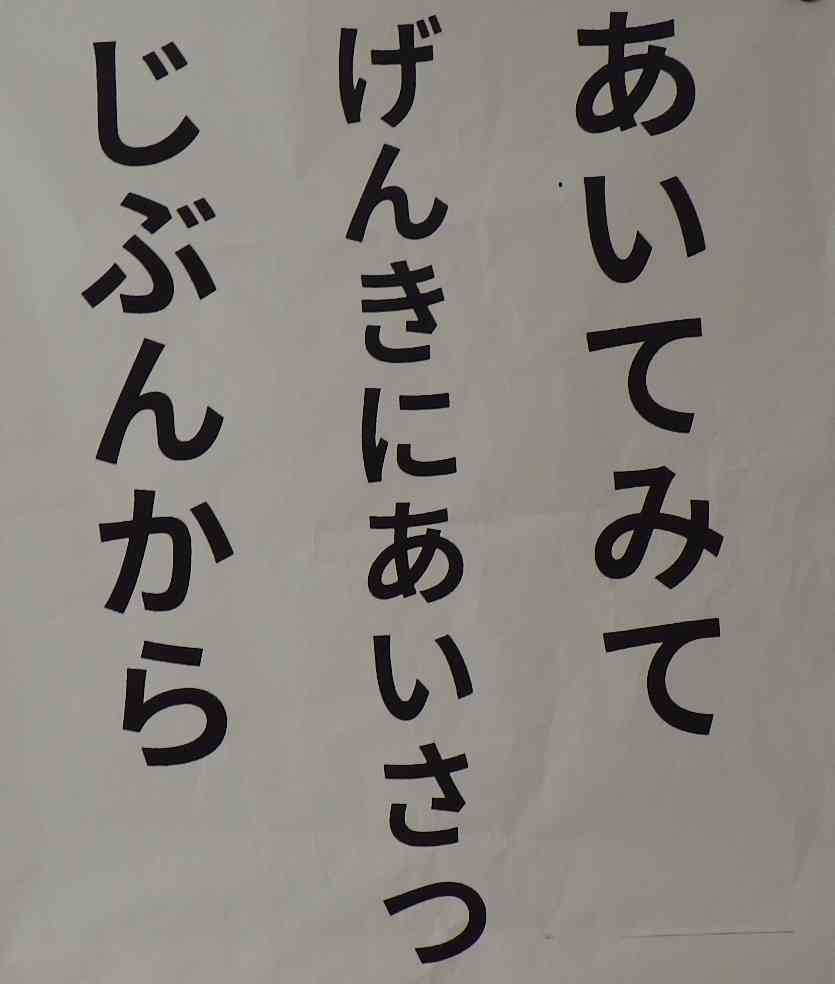 あいてみて
げんきにあいさつ
じぶんから